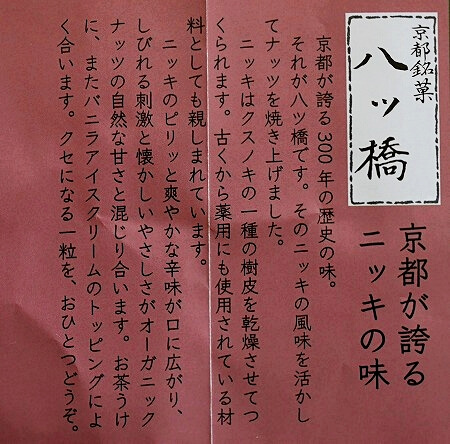 京都銘菓
八ッ橋
京都が誇る
ニッキの味
京都が誇る300年の歴史の味。
それが八ツ橋です。そのニッキの風味を活かし
てナッツを焼き上げました。
ニッキはクスノキの一種の樹皮を乾燥させてつ
くられます。古くから薬用にも使用されている材
料としても親しまれています。
ニッキのピリッと爽やかな辛味が口に広がり、
しびれる刺激と懐かしいやさしさがオーガニック
ナッツの自然な甘さと混じり合います。お茶うけ
に、またバニラアイスクリームのトッピングによ
く合います。クセになる一粒を、おひとつどうぞ。